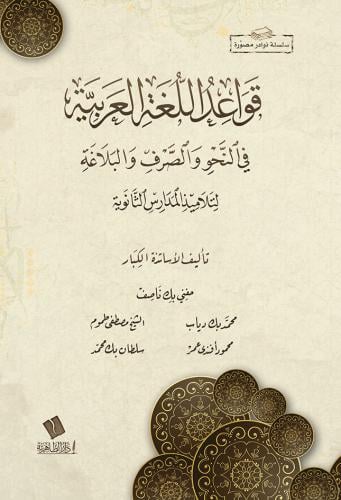 سلسلة نوادر مصورة
قَوَاعِدُ اللُّغَةِ العَرَبِيَّةِ
فِي النَّحْوِ وَالصَّرْفِ وَالبَلَاغَةِ
لِتَلَامِيذِ المَدَارِسِ الثَّانَوِيَّةِ
تأليف الأساتذة الكِبَار
حفني بك ناصف
محمد بك دياب الشيخ مصطفى طموم
محمود أفندي عمر سلطان بك محمد
دار الظاهرية